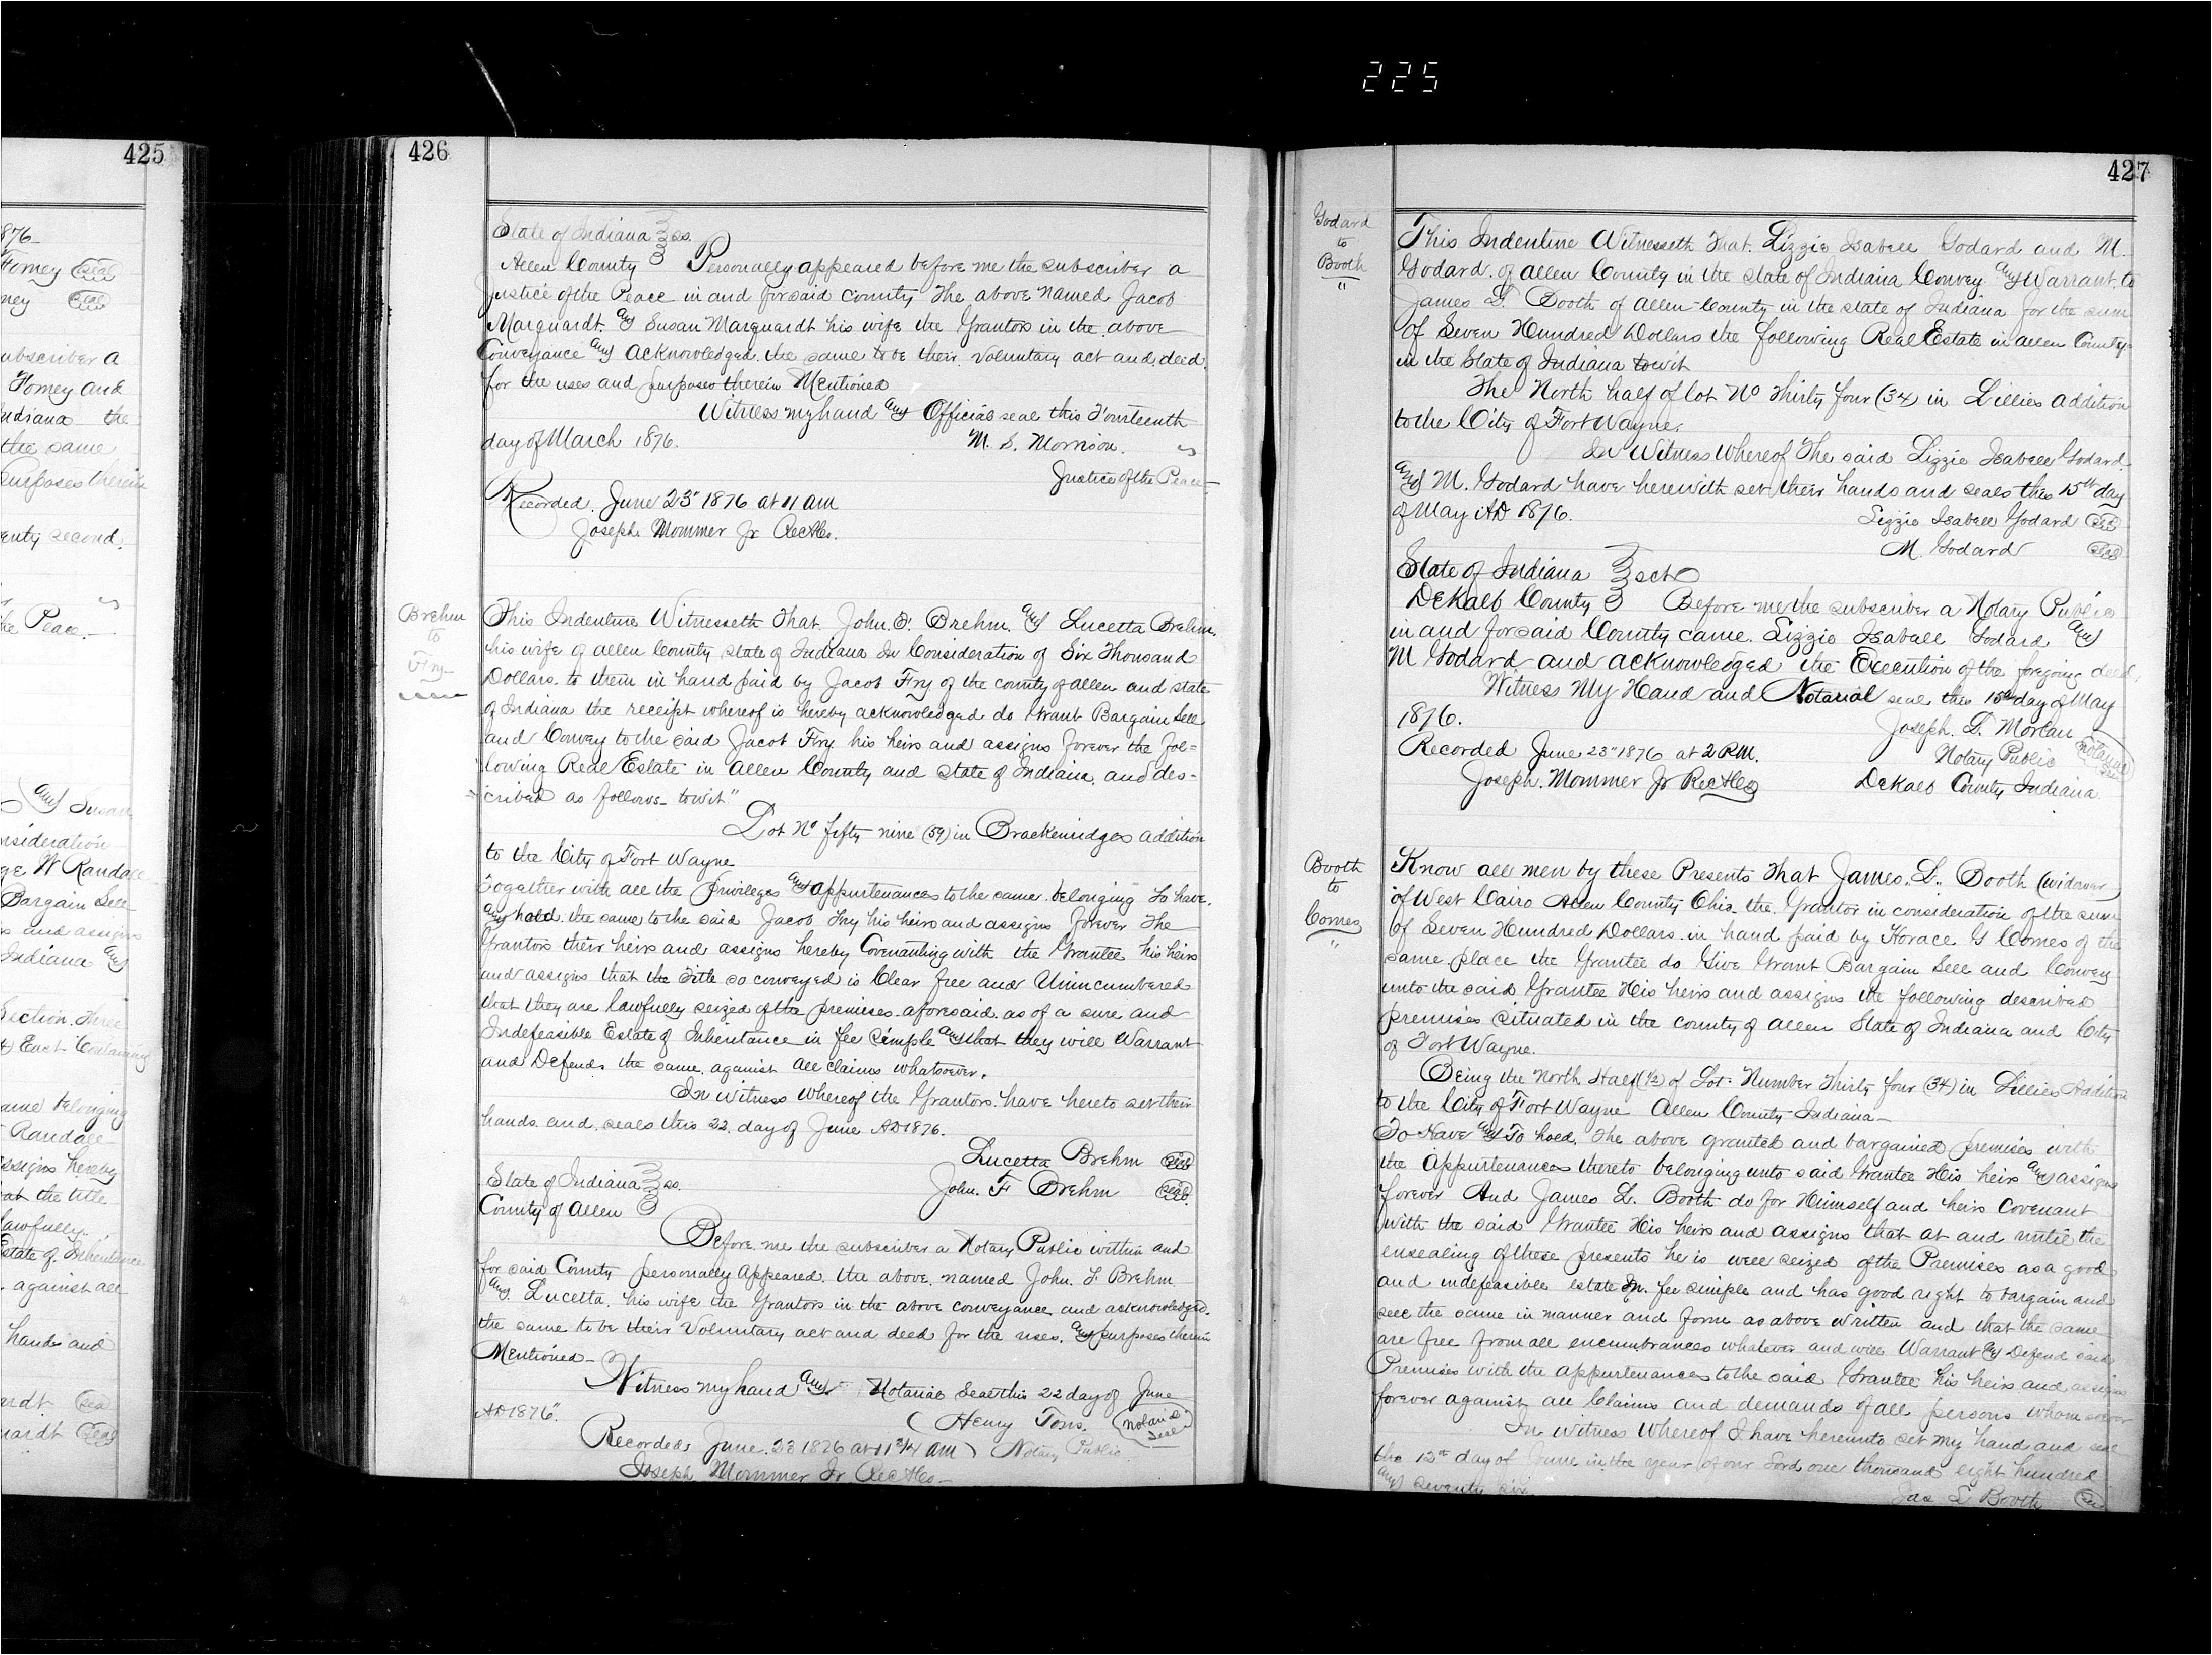 225
425
876
Forney Seal
ney Seal
ubscriber a
Forney and
ndiana the
the same
Purposes therein
enty second
he Peace.
and Susan
nsideration
ge W Randall
Bargain Sell
s and assigns
Indiana and
Section Three
East Containing
ame belonging
Randall
ssigns hereby
at the title
lawfully
Estate of Inheritance
against all
hands and
ardt Seal
uardt Seal
426
State of Indiana } ss.
Allen County } Personally appeared before me the subscriber a
Justice of the Peace in and for said County the above named Jacob
Marquardt and Susan Marquardt his wife the Grantors in the above
Conveyance and acknowledged the same to be their voluntary act and deed
for the uses and purposes therein Mentioned
Witness my hand and Official seal this Fourteenth
day of March 1876. M. S. Morrison.
Justice of the Peace
Recorded June 23" 1876 at 11 am
Joseph Mommer Jr RecACo.
Brehm
to
Fry
This Indenture Witnesseth That John. F. Brehm. and Lucetta Brehm.
his wife of allen County state of Indiana In Consideration of Six Thousand
Dollars. to them in hand paid by Jacob Fry of the county of allen and state
of Indiana the receipt whereof is hereby acknowledged do Grant Bargain Sell
and Convey to the said Jacob Fry his heirs and assigns forever the fol=
lowing Real Estate in Allen County and State of Indiana. and des-
cribed as follows- towit"
Lot No fifty nine (59) in Brackenridges addition
to the City of Fort Wayne
Together with all the Privileges and appurtenances to the same belonging To have
and hold. the same to the said Jacob Fry his heirs and assigns forever The
Grantors their heirs and assigns hereby Covenanting with the Grantee his heirs
and assigns that the Title so conveyed is Clear free and Unincumbered
that they are lawfully seized of the premises aforesaid. as of a sure and
Indefeasible Estate of Inheritance in fee Simple and that they will Warrant
and Defend the same against all claims whatsoever.
In witness whereof the Grantors have hereto set their
hands. and. seals this 22. day of June AD 1876.
Lucetta Brehm Seal
State of Indiana } ss. John. F Brehm Seal
County of Allen }
Before me the subscriber a Notary Public within and
for said County personally appeared the above named John. F. Brehm
and Lucetta. his wife the Grantors in the above conveyance and acknowledged.
the same to be their Voluntary act and deed for the uses. and purposes therein
Mentioned-
Witness my hand and Notarial Seal this 22 day of June
AD 1876". Henry Tons. Notarial Seal
Recorded June. 23 1876 at 11 3/4 am Notary Public
Joseph Mommer Jr RecACo-
427
Godard
to
Booth
"
This Indenture Witnesseth That. Lizzie Isabell Godard and M.
Godard. of allen County in the state of Indiana Convey and Warrant. to
James L. Booth of allen County in the state of Indiana for the sum
of Seven Hundred Dollars the following Real Estate in allen County
in the State of Indiana towit
The North half of lot No Thirty four (34) in Lillies addition
to the City of Fort Wayne.
In Witness whereof The said Lizzie Isabell Godard.
and M. Godard have herewith set their hands and seals this 15th day
of May AD 1876. Lizzie Isabell Godard Seal
M. Godard Seal
State of Indiana } sct
DeKalb County } Before me the subscriber a Notary Public
in and for said County came. Lizzie Isabell Godard and
M Godard and acknowledged the Execution of the foregoing deed,
Witness My Hand and Notarial seal this 15th day of May
1876. Joseph. D. Morlan
Recorded June 23" 1876 at 2 P.M. Notary Public Notarial Seal
Joseph. Mommer Jr RecACo DeKalb County Indiana.
Booth
to
Comes
"
Know all men by these Presents That James. L. Booth (widower)
of West Cairo Allen County Ohio the Grantor in consideration of the sum
of Seven Hundred Dollars. in hand paid by Horace G Comes of the
same place the Grantee do Give Grant Bargain Sell and Convey
unto the said Grantee His heirs and assigns the following described
premises situated in the county of allen State of Indiana and City
of Fort Wayne.
Being the North Half (1/2) of Lot Number Thirty four (34) in Lillies Addition
to the City of Fort Wayne Allen County Indiana-
To Have and To hold. The above granted and bargained premises with
the Appurtenances thereto belonging unto said Grantee His heirs and assigns
forever And James L. Booth do for Himself and heirs Covenant
with the said Grantee His heirs and assigns that at and until the
ensealing of these presents he is well seized of the Premises as a good
and indefeasible estate In. fee simple and has good right to bargain and
sell the same in manner and form as above written and that the same
are free from all encumbrances whatever and will Warrant and Defend said
Premises with the appurtenances to the said Grantee his heirs and assigns
forever against all Claims and demands of all persons whomsoever
In witness Whereof I have hereunto set my hand and seal
the 12th day of June in the year of our Lord one thousand eight hundred
and seventy six
Jas L Booth Seal